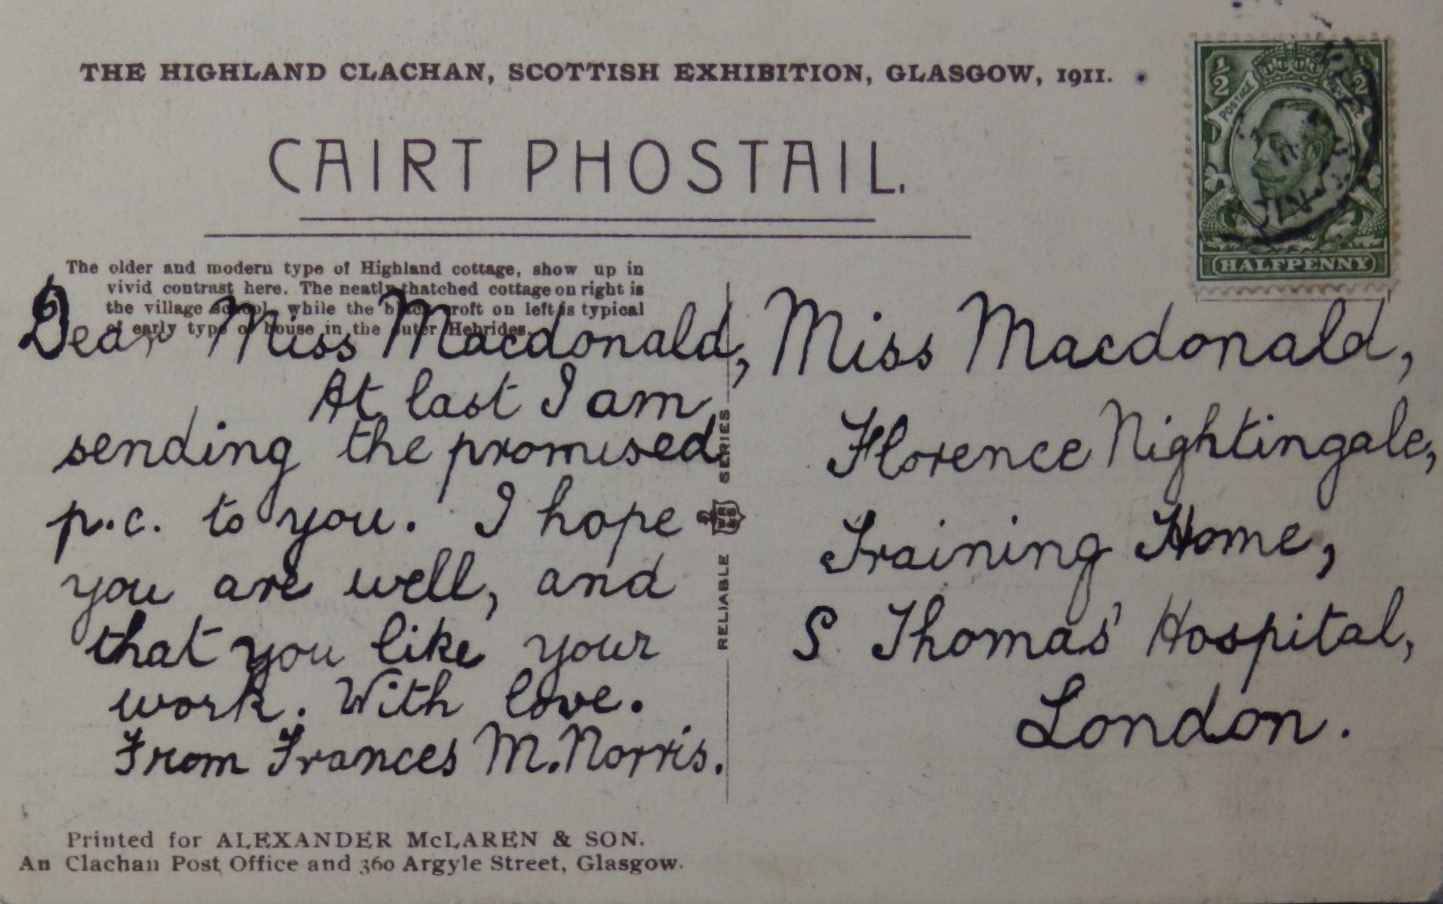 THE HIGHLAND CLACHAN, SCOTTISH EXHIBITION, GLASGOW, 1911.
CAIRT PHOSTAIL.
1/2 POSTAGE 1/2
HALFPENNY
The older and modern type of Highland cottage, show up in
vivid contrast here. The neatly thatched cottage on right is
the village school, while the black croft on left is typical
of early type of house in the Outer Hebrides.
Dear Miss Macdonald,
At last I am
sending the promised
p.c. to you. I hope
you are well, and
that you like your
work. With love.
From Frances M. Norris.
RELIABLE SERIES
Miss Macdonald,
Florence Nightingale,
Training Home,
S Thomas' Hospital,
London.
Printed for ALEXANDER McLAREN & SON.
An Clachan Post Office and 360 Argyle Street, Glasgow.